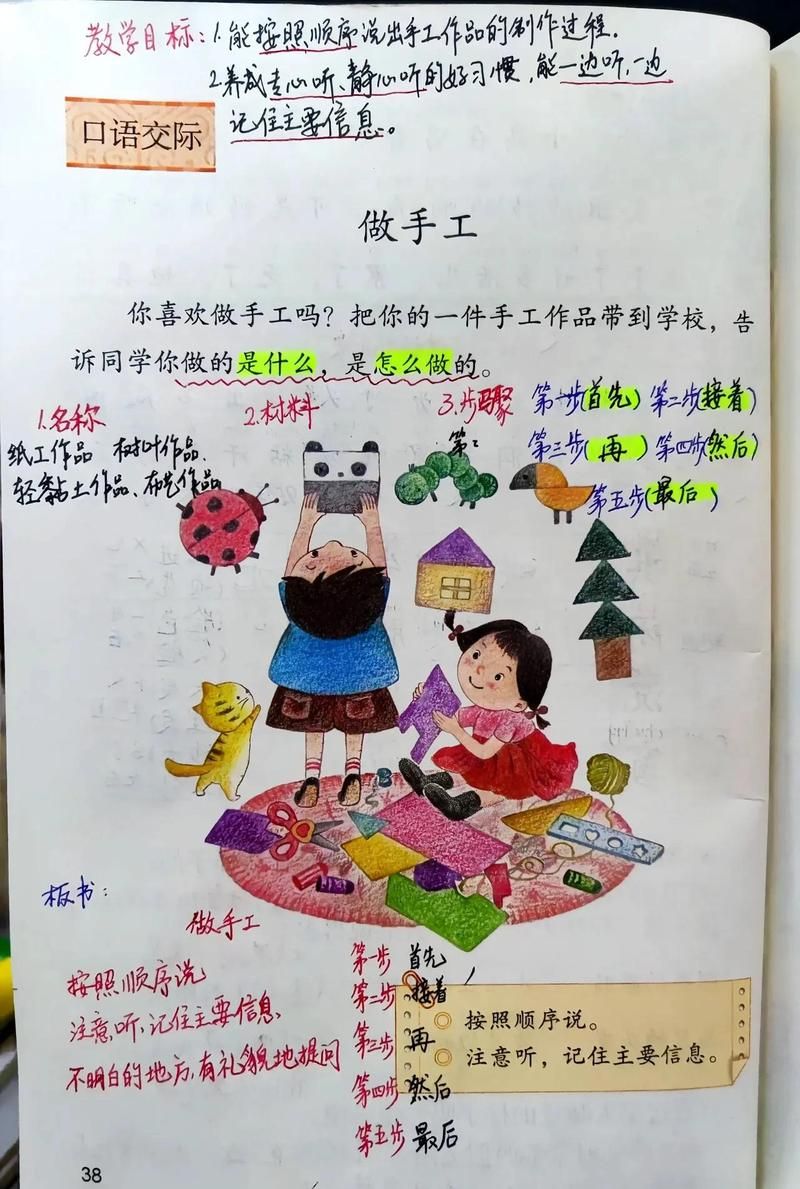 教学目标：1.能按照顺序说出手工作品的制作过程.
2.养成专心听、静心听的好习惯,能一边听,一边
记住主要信息。
口语交际
做手工
你喜欢做手工吗？把你的一件手工作品带到学校，告
诉同学你做的是什么，是怎么做的。
1.名称
2.材料
3.步骤
第一步(首先) 第二步(接着)
第三步(再) 第四步(然后)
第五步(最后)
纸工作品 树叶作品、
轻黏土作品、布艺作品
板书：
做手工
按照顺序说
注意听、记住主要信息、
不明白的地方,有礼貌地提问
第一步 首先
第二步 接着
第三步 再
第四步 然后
第五步 最后
按照顺序说。
注意听，记住主要信息。
38